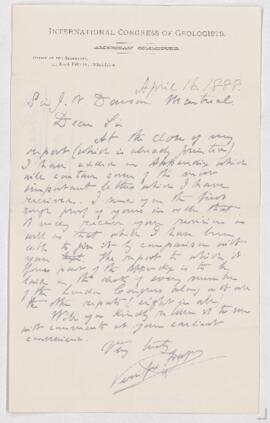 INTERNATIONAL CONGRESS OF GEOLOGISTS.
AMERICAN COMMITTEE.
OFFICE OF THE SECRETARY,
April 16, 1888.
Sir J. W. Dawson Montreal
Dear Sir
At the close of my
report (which is already printed)
I have added an Appendix which
will contain some of the most
important letters which I have
received. I send you the first
rough proof of yours in order that
it may receive your revision as
well as that which I have been
able to give it by comparison with
your the report to which it
forms part of the Appendix is to be
laid on the desk of every member
of the London Congress along with all
the other reports (eight in all)
Will you kindly return it to me
with corrections at your earliest
convenience.
Very truly